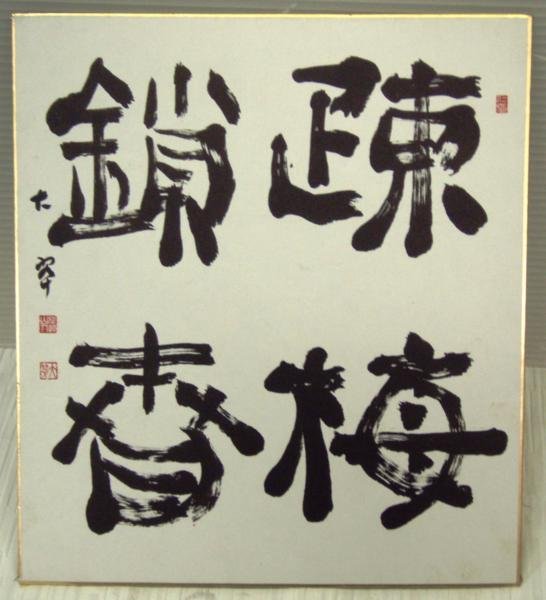 疎梅
鎖香
大翠